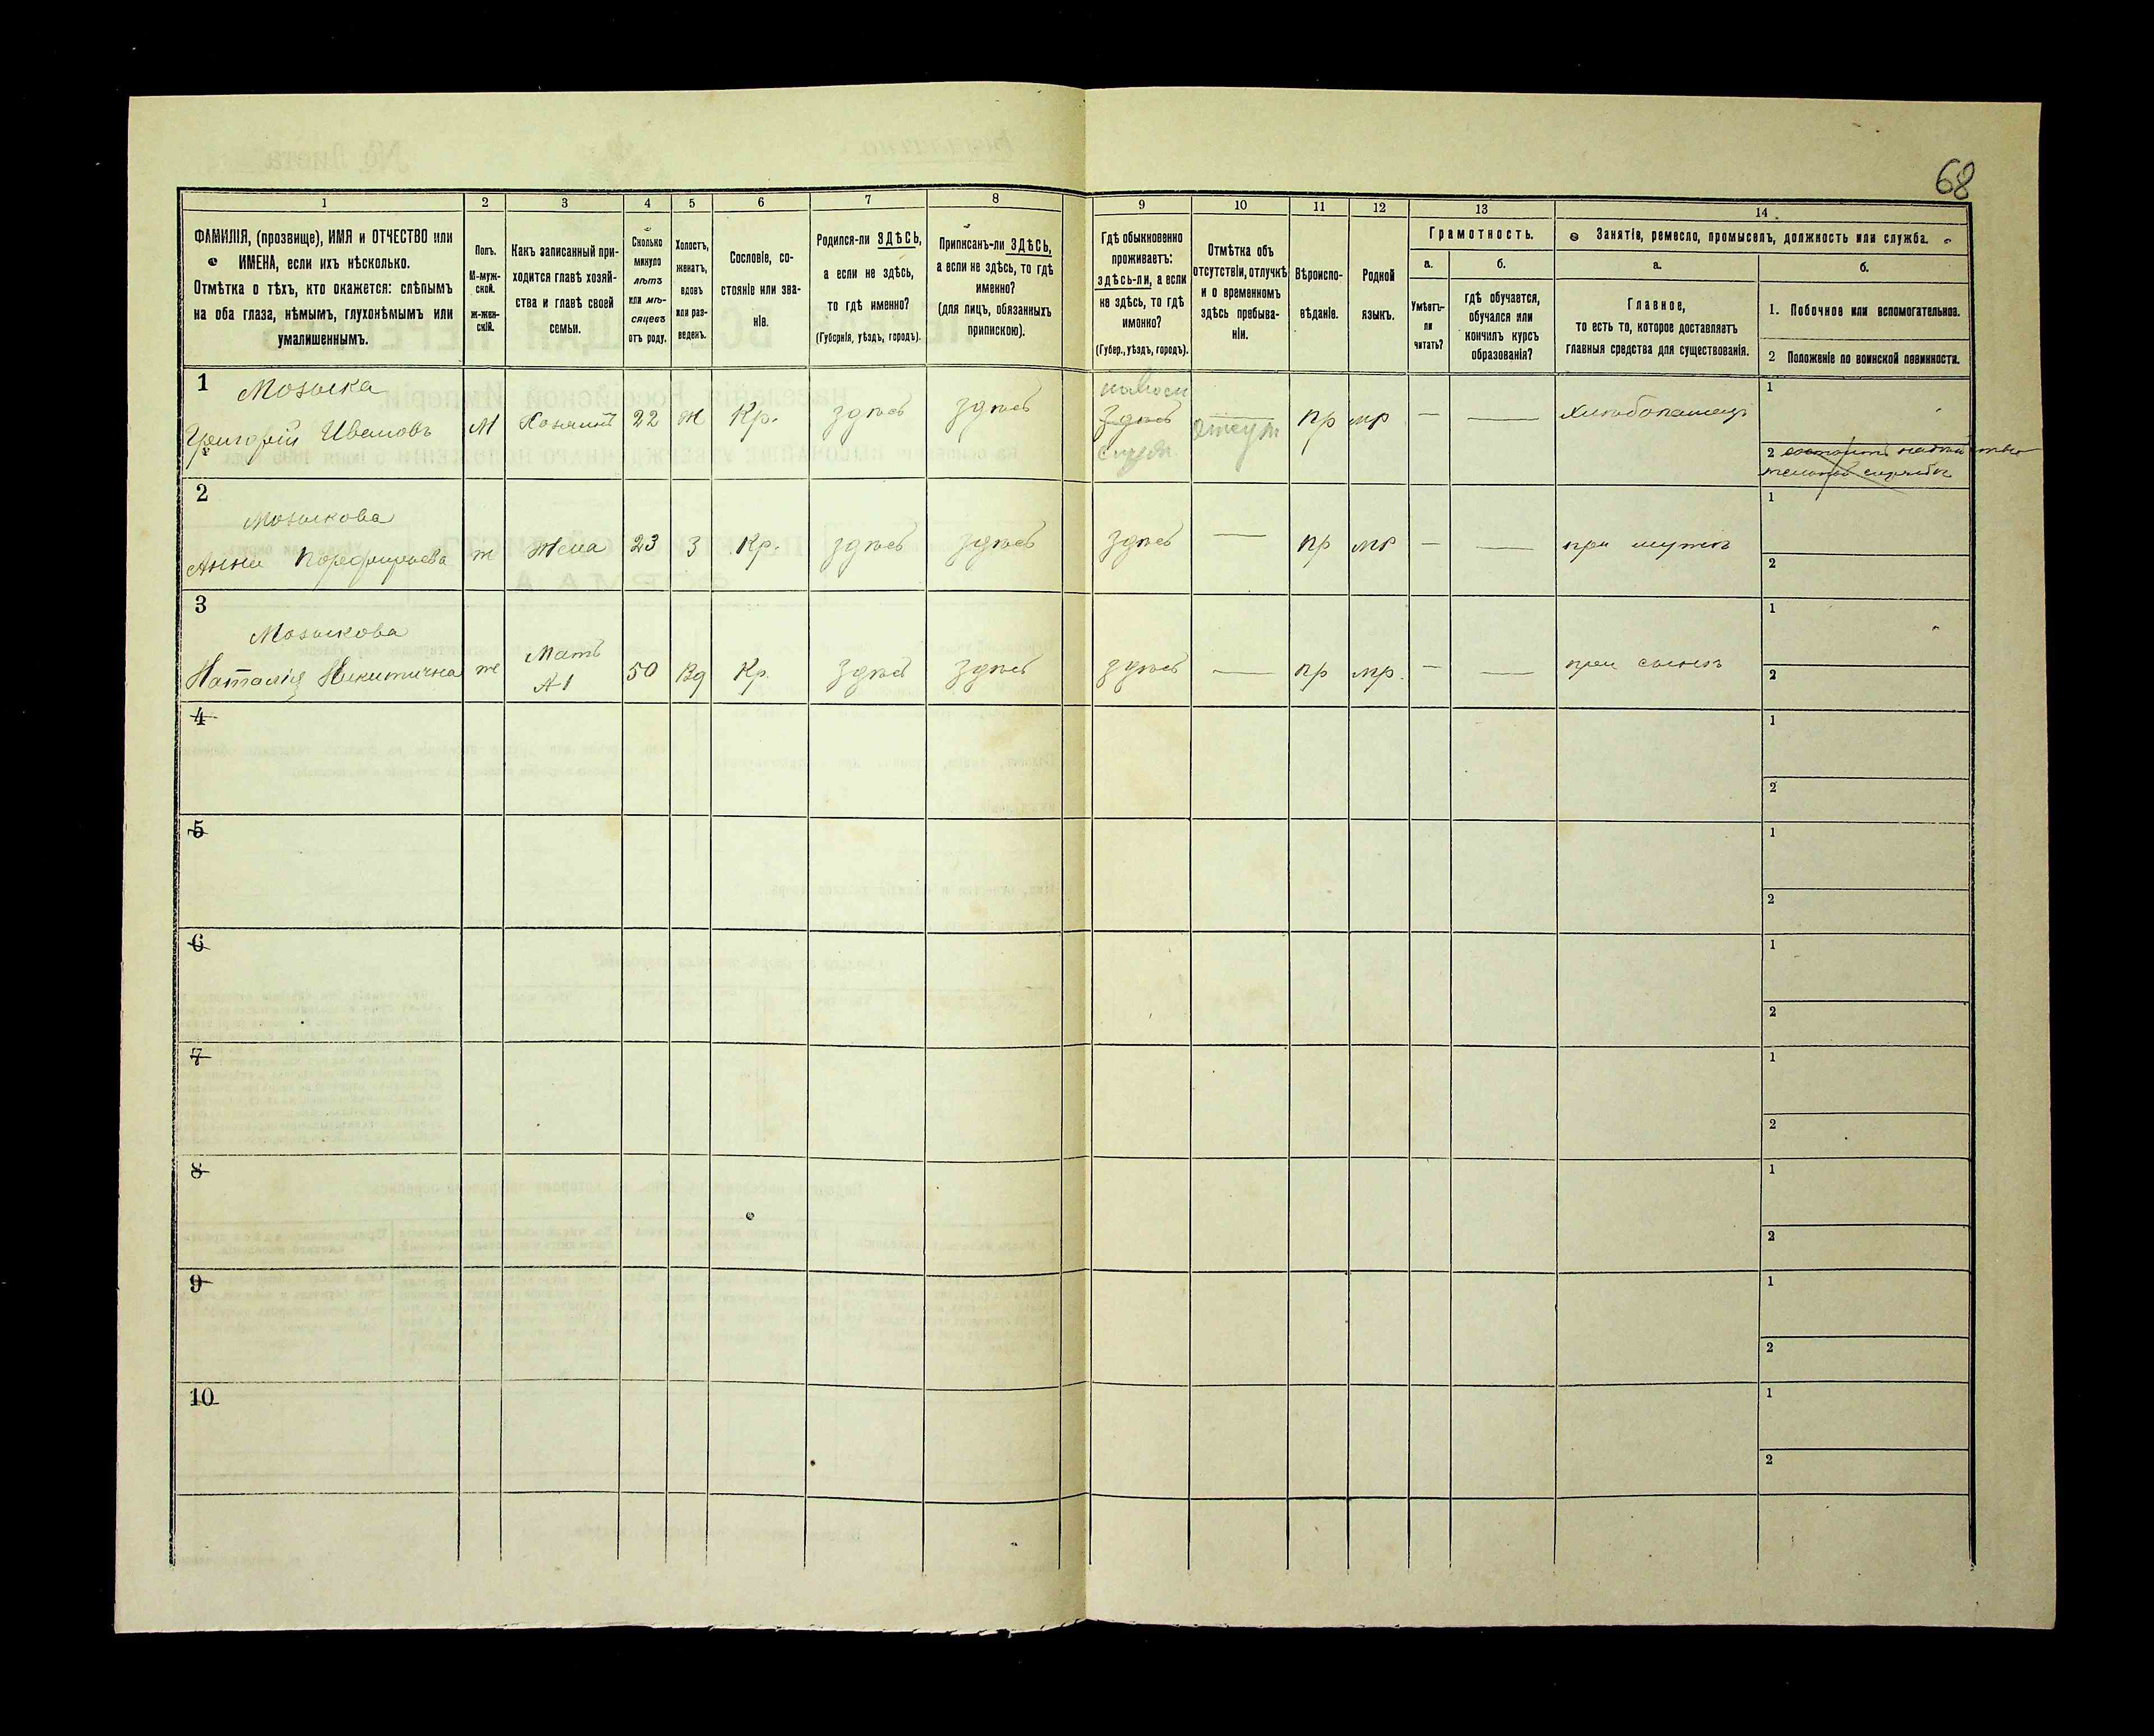 68
1
2
3
4
5
6
7
8
9
10
11
12
13
14
ФАМИЛІЯ, (прозвище), ИМЯ и ОТЧЕСТВО или
ИМЕНА, если ихъ нѣсколько.
Отмѣтка о тѣхъ, кто окажется: слѣпымъ
на оба глаза, нѣмымъ, глухонѣмымъ или
умалишеннымъ.
Полъ.
М-муж-
ской.
ж-жен-
скій.
Какъ записанный при-
ходится главѣ хозяй-
ства и главѣ своей
семьи.
Сколько
минуло
лѣтъ
или мѣ-
сяцевъ
отъ роду.
Холостъ,
женатъ,
вдовъ
или раз-
веденъ.
Сословіе, со-
стояніе или зва-
ніе.
Родился-ли ЗДѢСЬ,
а если не здѣсь,
то гдѣ именно?
(Губернія, уѣздъ, городъ).
Приписанъ-ли ЗДѢСЬ,
а если не здѣсь, то гдѣ
именно?
(для лицъ, обязанныхъ
припискою).
Гдѣ обыкновенно
проживаетъ:
здѣсь-ли, а если
не здѣсь, то гдѣ
именно?
(Губер., уѣздъ, городъ).
Отмѣтка объ
отсутствіи, отлучкѣ
и о временномъ
здѣсь пребыва-
ніи.
Вѣроиспо-
вѣданіе.
Родной
языкъ.
Грамотность.
а.
Умѣетъ-
ли
читать?
б.
гдѣ обучается,
обучался или
кончилъ курсъ
образованія?
Занятіе, ремесло, промыселъ, должность или служба.
а.
Главное,
то есть то, которое доставляетъ
главныя средства для существованія.
б.
1. Побочное или вспомогательное.
2 Положеніе по воинской повинности.
1 Мозыка
Григорій Ивановъ
М
Хозяинъ
22
Ж
Кр.
здѣсь
здѣсь
здѣсь
служ
Отсут
пр
мр
—
—
хлѣбопашецъ
1
2 состоитъ
службѣ
2
Мозыкова
Анна Порфирьева
ж
Жена
23
З
Кр.
здѣсь
здѣсь
здѣсь
—
пр
мр
—
—
при мужѣ
1
2
3
Мозыкова
Наталія Никитична
ж
Мать
А-1
50
Вд
Кр.
здѣсь
здѣсь
здѣсь
—
пр
мр.
—
—
при сынѣ
1
2
4
1
2
5
1
2
6
1
2
7
1
2
8
1
2
9
1
2
10
1
2